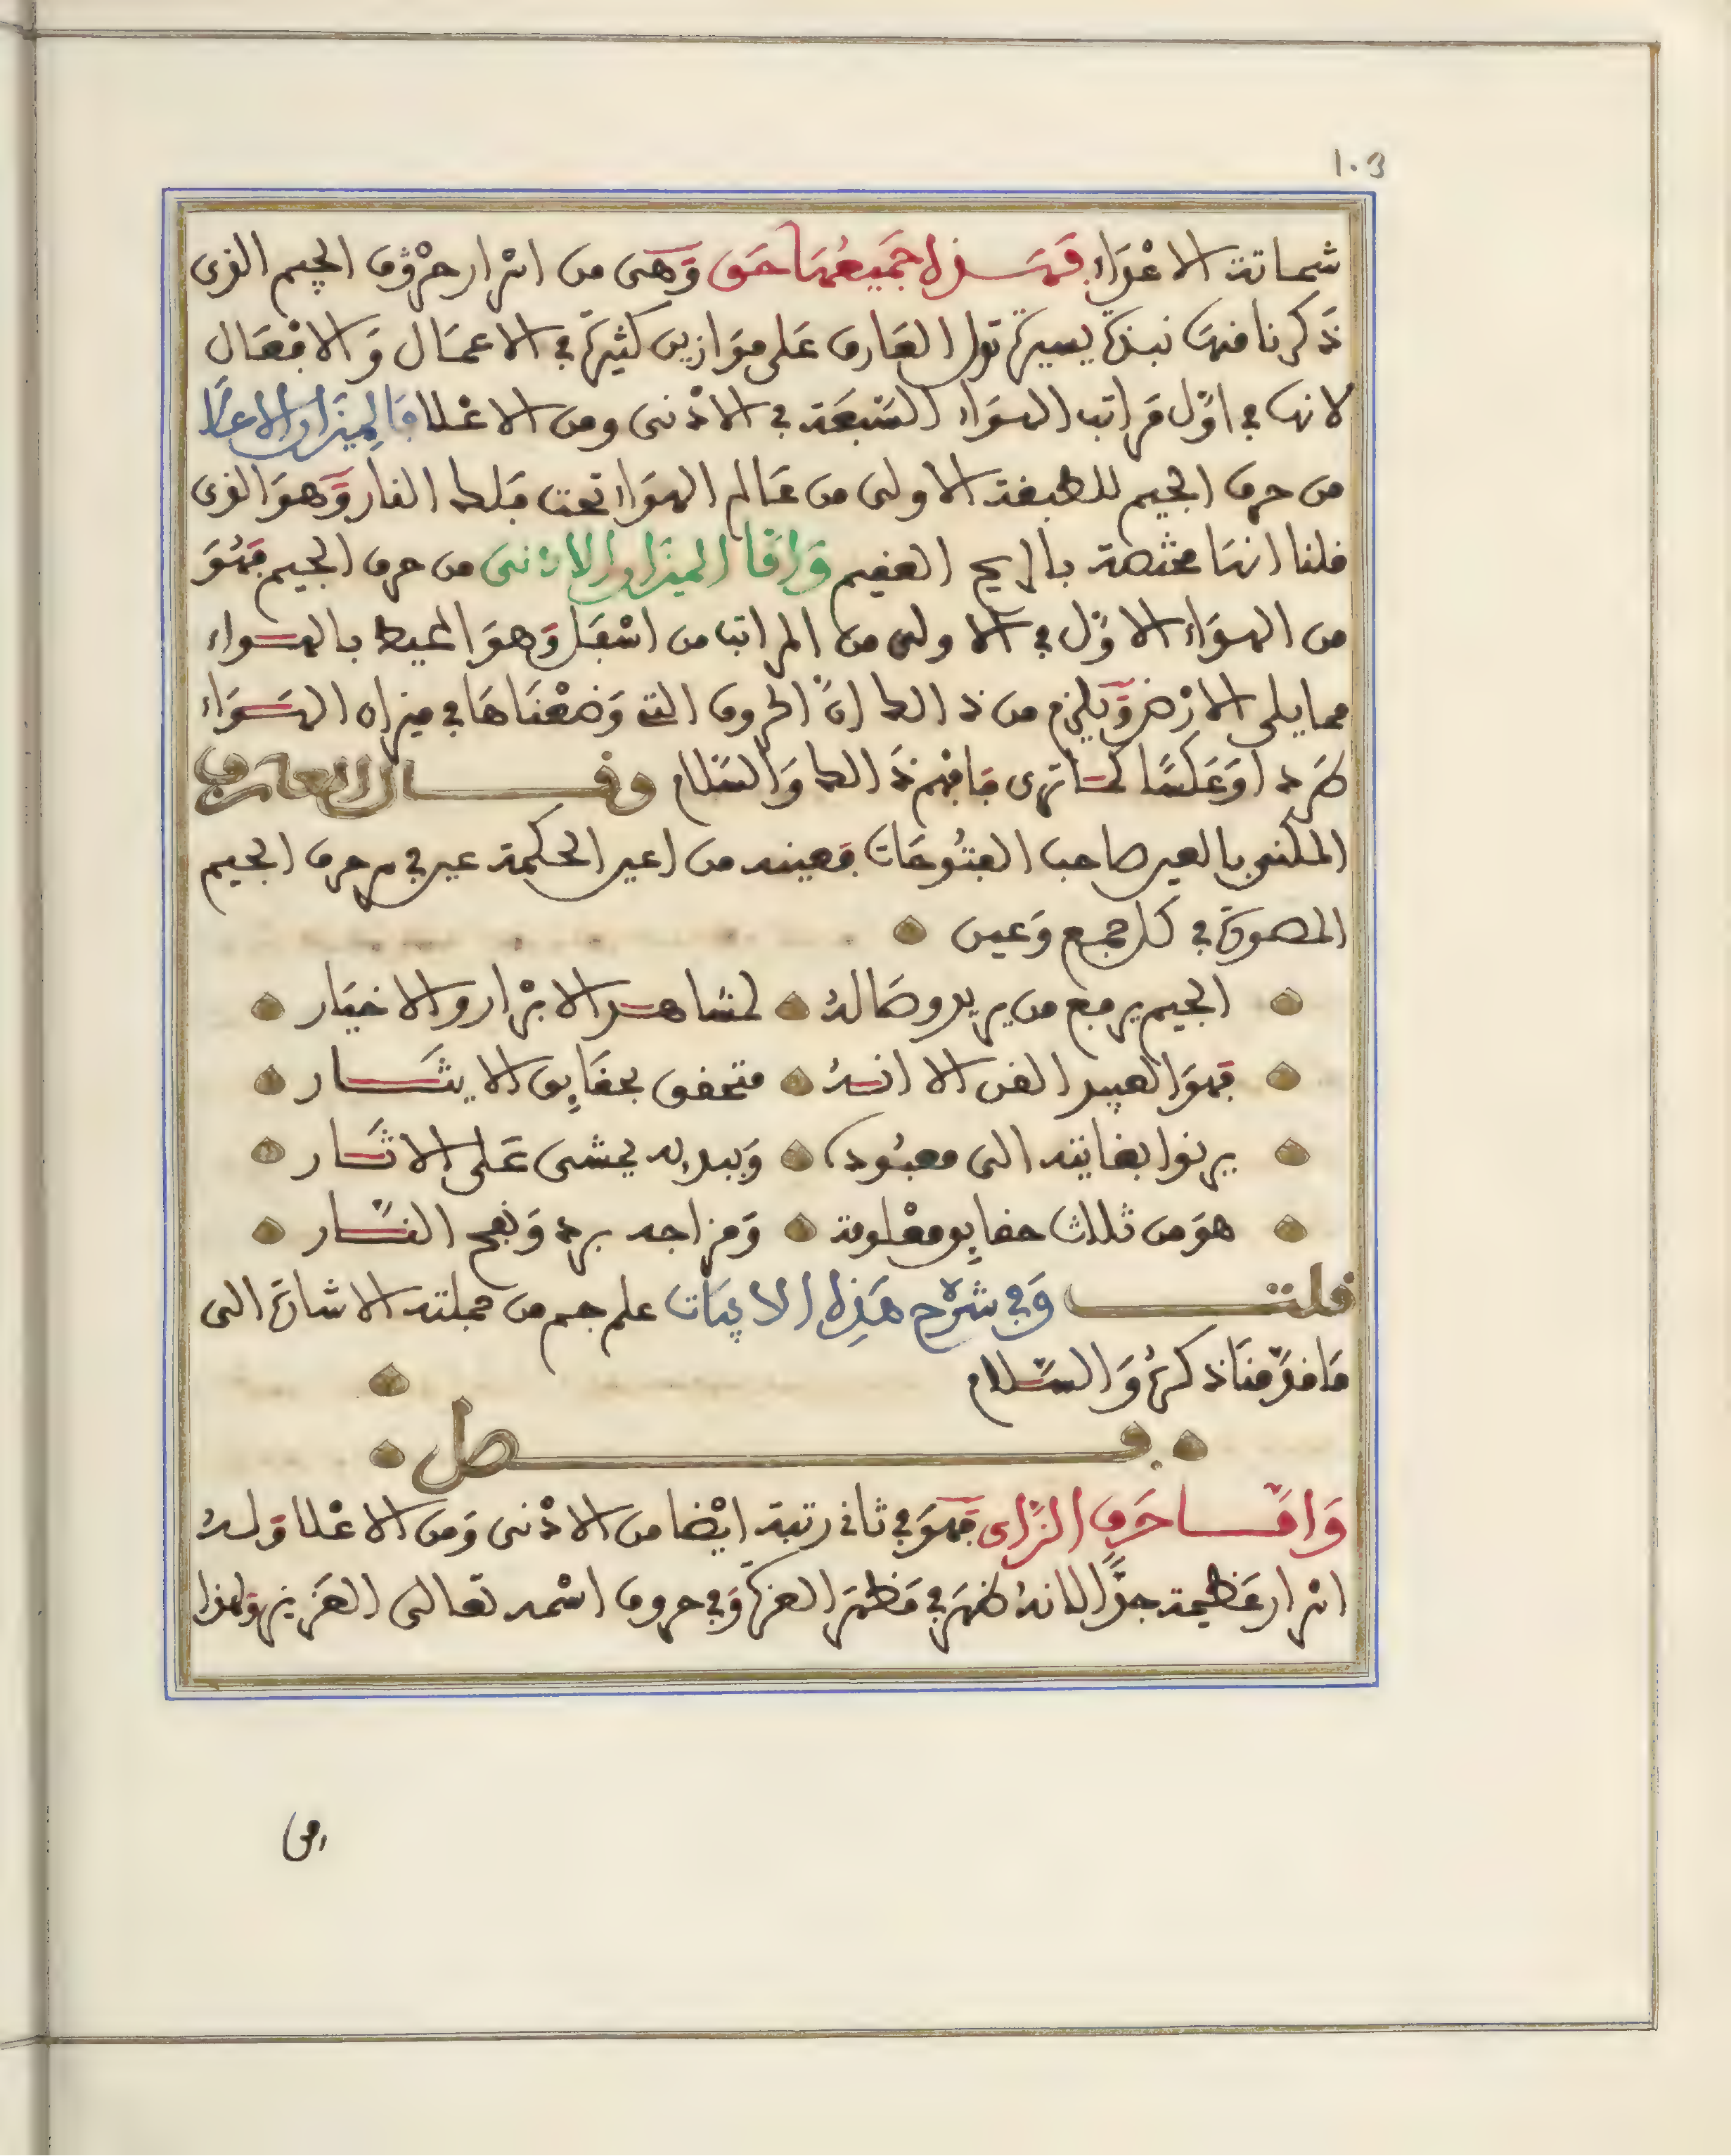 103
شماتة الاعْدَاءِ فهَــذه جَميعُهَا حَق وَهى من اسْرار حرْوُف الجيم الذى
ذَكرنا منهَا نبذة يسيرة تدل العَارف عَلى مَوَازين كثيرة في الاعمَال وَالافْعَال
لانها في اوّل مَراتب الهوَاء السّبعَة في الادْنى ومن الاعْلا فَالمِيزَان الاعلَا
من حرف الجيم للطبقة الاولى من عَالم الهوَاء تحت فَلك النار وَهوَ الذى
قلنا انهَا ممتزجة بالريح العقيم وَامَّا الميزَان الادْنى من حرف الجيم فَهُوَ
من الهوَاء الاوّل في الاولى من المراتب من اسْفَل وَهوَ المحيط بالهــواء
مما يلى الارْض وَيلزم من ذالك انّ الحروف التى وَضعْنَاهَا في ميزان الهَــوَاء
طرد اوَعَكسًا كمــا ترى فَافهم ذَالك وَالسّلام وقــال العارف
المكنى بالعين صاحب الفتُوحَات فعينه من اعين الحكمة عين في سر حرف الجيم
المصورة في كل جمع وَعين
الجيم يرفع من يريد وصَالهُ لمشاهــد الابْرار والاخيَار
فهوَ العبيد القن الا انّــهُ متحقق بحقَايِق الايثَــار
يرنوا بغايته الى معبُوده وَببدئه يمشى عَلى الاثَــار
هوَ من ثلاث حقايِق معْلومة وَمزاجه برد وَلفح النّــار
قلتــ وَفي شرْح هَذِه الابيَات علم جم من جملته الاشارَة الى
مَا قدّمنَا ذكرهُ وَالسّــلام
فــصل
وَامّــا حَرف الزَّاى فَهوَ في ثانى رتبة ايْضا من الادْنى وَمن الاعْلا وَلــهُ
اسْرار عَظيمة جدًّا لانهُ ظهَر في مَظهَر العزة وَفي حروف اسْمه تعَالى العَزيز وَلهذا
من